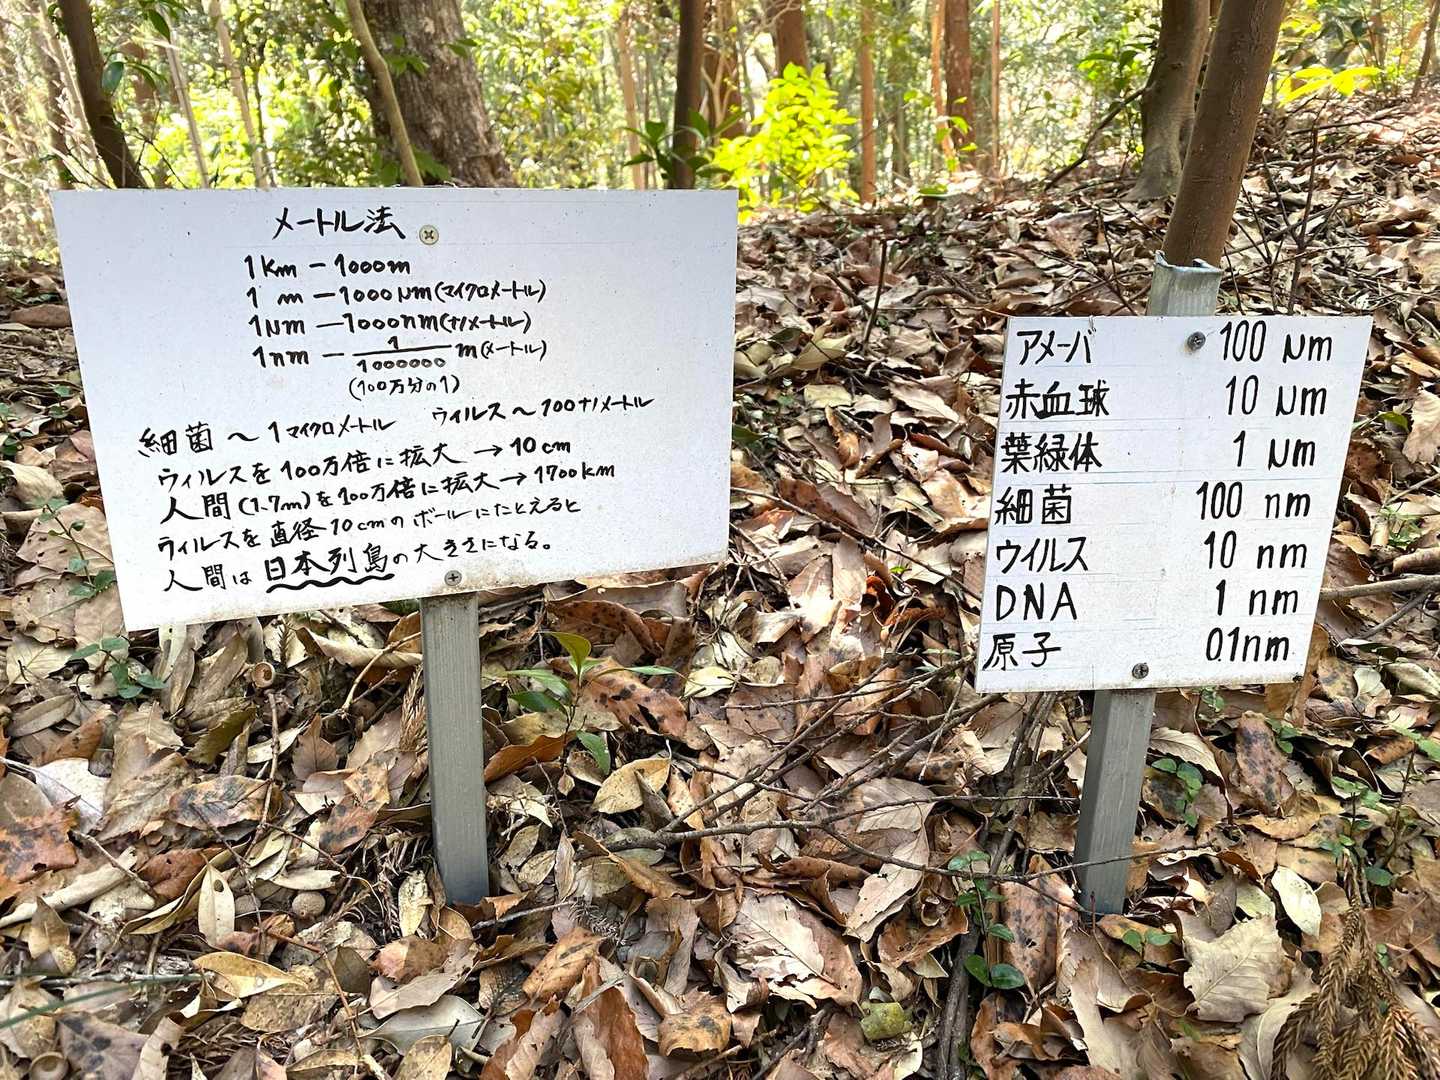 メートル法
1Km－1000m
1 m－1000μm(マイクロメートル)
1μm－1000nm(ナノメートル)
1nm－1/1000000 m(メートル)
(100万分の1)
細菌～1マイクロメートル ウィルス～100ナノメートル
ウィルスを100万倍に拡大→10cm
人間(1.7m)を100万倍に拡大→1700km
ウィルスを直径10cmのボールにたとえると
人間は日本列島の大きさになる。
アメーバ 100 μm
赤血球 10 μm
葉緑体 1 μm
細菌 100 nm
ウイルス 10 nm
DNA 1 nm
原子 0.1nm